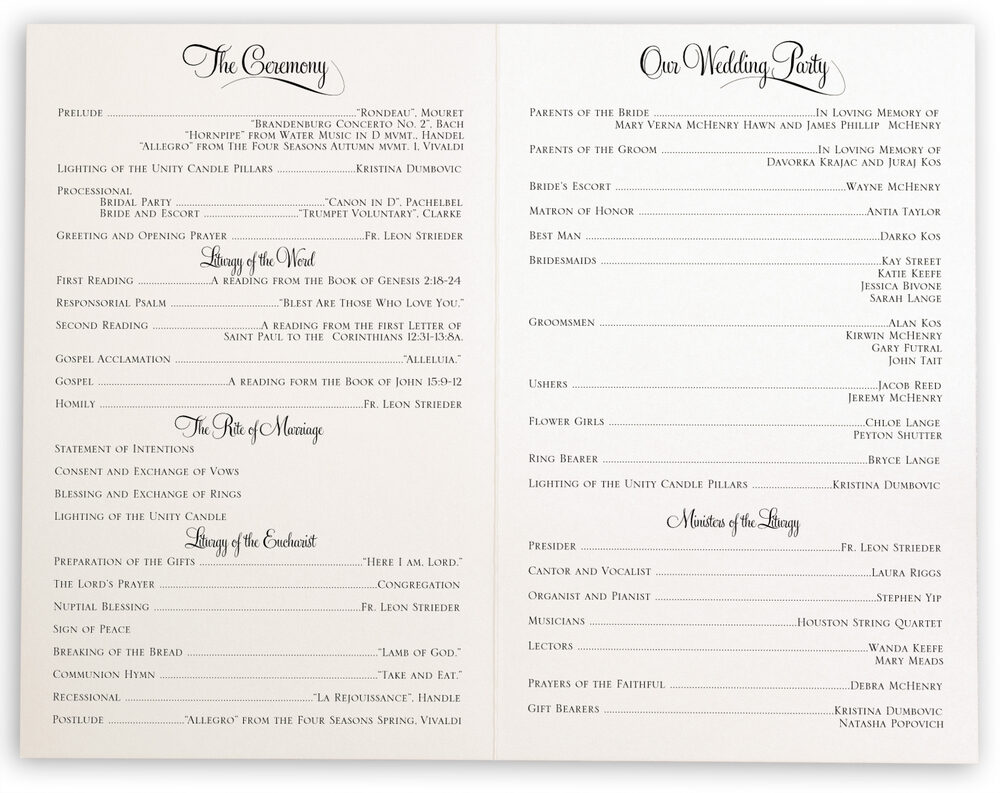 The Ceremony
Prelude ..."Rondeau", Mouret
"Brandenburg Concerto No. 2", Bach
"Hornpipe" from Water Music in D mvmt., Handel
"Allegro" from The Four Seasons Autumn mvmt. I, Vivaldi
Lighting of the Unity Candle Pillars ...Kristina Dumbovic
Processional
Bridal Party ..."Canon in D", Pachelbel
Bride and Escort ..."Trumpet Voluntary", Clarke
Greeting and Opening Prayer ...Fr. Leon Strieder
Liturgy of the Word
First Reading ...A reading from the Book of Genesis 2:18-24
Responsorial Psalm ..."Blest Are Those Who Love You."
Second Reading ...A reading from the first Letter of
Saint Paul to the Corinthians 12:31-13:8a.
Gospel Acclamation ..."Alleluia."
Gospel ...A reading form the Book of John 15:9-12
Homily ...Fr. Leon Strieder
The Rite of Marriage
Statement of Intentions
Consent and Exchange of Vows
Blessing and Exchange of Rings
Lighting of the Unity Candle
Liturgy of the Eucharist
Preparation of the Gifts ..."Here I am, Lord."
The Lord's Prayer ...Congregation
Nuptial Blessing ...Fr. Leon Strieder
Sign of Peace
Breaking of the Bread ..."Lamb of God."
Communion Hymn ..."Take and Eat."
Recessional ..."La Rejouissance", Handle
Postlude ..."Allegro" from the Four Seasons Spring, Vivaldi
Our Wedding Party
Parents of the Bride ...In Loving Memory of
Mary Verna McHenry Hawn and James Phillip McHenry
Parents of the Groom ...In Loving Memory of
Davorka Krajac and Juraj Kos
Bride's Escort ...Wayne McHenry
Matron of Honor ...Antia Taylor
Best Man ...Darko Kos
Bridesmaids ...Kay Street
Katie Keefe
Jessica Bivone
Sarah Lange
Groomsmen ...Alan Kos
Kirwin McHenry
Gary Futral
John Tait
Ushers ...Jacob Reed
Jeremy McHenry
Flower Girls ...Chloe Lange
Peyton Shutter
Ring Bearer ...Bryce Lange
Lighting of the Unity Candle Pillars ...Kristina Dumbovic
Ministers of the Liturgy
Presider ...Fr. Leon Strieder
Cantor and Vocalist ...Laura Riggs
Organist and Pianist ...Stephen Yip
Musicians ...Houston String Quartet
Lectors ...Wanda Keefe
Mary Meads
Prayers of the Faithful ...Debra McHenry
Gift Bearers ...Kristina Dumbovic
Natasha Popovich